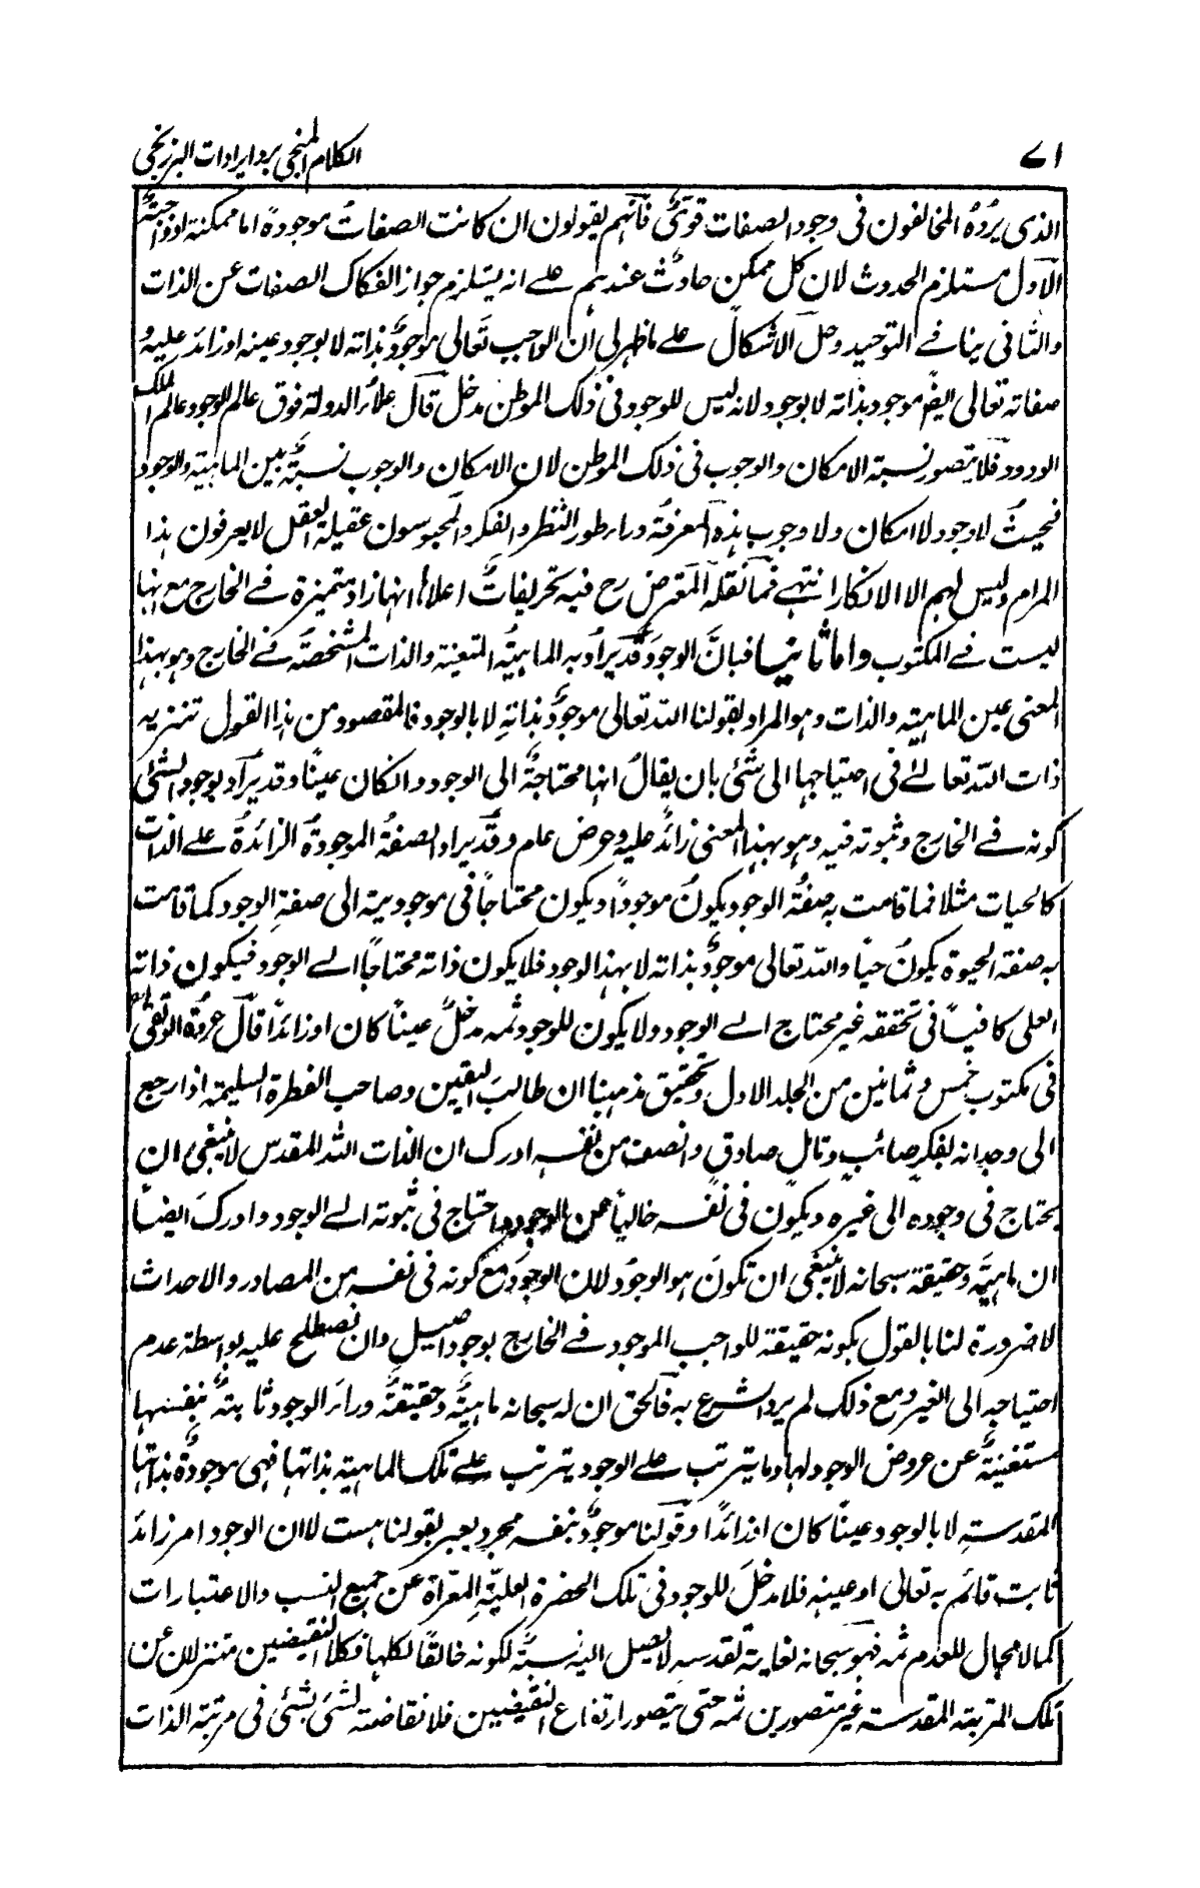 ٧١
الكلام المنجي برد ايرادات البرزنجي
الذى يرُدُه المخالفون فى وجود الصفات قوىٌّ فانّهم يقولون ان كانت الصفاتُ موجودةً اما ممكنة او واجبةٌ
الاول مستلزم الحدوث لان كل ممكنٍ حادثٌ عندهم على انه يستلزم جواز انفكاك الصفات عن الذات
والثانى ينافى التوحيد وحل الاشكال على ما ظهر لى ان الواجب تَعالى موجودٌ بذاته لا بوجود عينه او زائد عليه و
صفاته تعالى ايضًا موجود بذاته لا بوجود لانه ليس للوجود فى ذلك الموطن مدخل قال علاء الدولة فوق عالم الوجود عالم الملك
الودود فلا يتصور نسبة الامكان والوجوب فى ذلك الموطن لان الامكان والوجوب نسبةٌ بين الماهية والوجود
فحيثُ لا وجود لا امكان ولا وجوب هذه المعرفة وراء طور النظر والفكر والمحبوسون عقيلة العقل لا يعرفون هذا
المرام وليس لهم الا الانكار انتهى فما نقله المعترض رح فيه تحريفاتٌ اعلاها انها زاد متميزة فى الخارج مع انها
ليست فى المكتوب واما ثانيًا فبانَّ الوجود قد يراد به الماهيةُ المتعينة والذات المشخصة فى الخارج وهو بهذا
المعنى عين الماهية والذات وهو المراد بقولنا الله تعالى موجودٌ بذاتهِ لا بالوجود فالمقصود من هذا القول تنزيه
ذات الله تعالى فى احتياجها الى شئ بان يقالُ انها محتاجةٌ الى الوجود وانكان عينًا وقد يراد بوجود الشئ
كونه فى الخارج وثبوته فيه وهو بهذا المعنى زائدٌ عليه وعرض عام وقد يراد الصفةُ الموجودةُ الزائدةُ على الذات
كالحيات مثلا فما قامت به صفةُ الوجود يكونُ موجودًا ويكون محتاجًا فى موجوديته الى صفةِ الوجود كما قامت
به صفة الحيوة يكونُ حيًا والله تعالى موجودٌ بذاته لا بهذا الوجود فلا يكون ذاته محتاجًا الى الوجود فيكون ذاته
العلى كافيًا فى تحققه غير محتاج الى الوجود ولا يكون للوجود ثمه مدخلٌ عينًا كان او زائدًا قال عروة الوثقى
فى مكتوب خمس وثمانين من الجلد الاول وتحقيق مذهبنا ان طالبَ اليقين وصاحب الفطرة السليمة اذا رجع
الى وجدانه بفكرٍ صائبٍ وتامل صادقٍ وانصف من نفسه ادرك ان الذات الله المقدس لا ينبغى ان
يحتاج فى وجوده الى غيره ويكون فى نفسه خاليًا عن الوجود واحتاج فى ثبوته الى الوجود وادركَ ايضًا
ان ماهيَّة وحقيقة سبحانه لا ينبغى ان تكونَ هو الوجود لان الوجود مع كونه فى نفسه من المصادر والاحداث
لا ضرورة لنا بالقول بكونه حقيقة للواجب الموجود فى الخارج بوجود اصيلٍ وان نصطلح عليه بواسطة عدم
احتياجه الى الغير ومع ذلك لم يرد الشرع به فالحق ان له سبحانه ماهيَّةٌ وحقيقةٌ وراءَ الوجود ثابتةٌ بنفسها
مستغنيةٌ عن عروض الوجود لها وما يترتب على الوجود يترتب على تلك الماهية بذاتها فهى موجودةٌ بذاتها
المقدسةِ لا بالوجود عينًا كان او زائدًا وقولنا موجودٌ بنفسه مجرد يعبر بقولنا هست لا ان الوجود امر زائد
ثابت قائم به تعالى او عينه فلا مدخلَ للوجود فى تلك الحضرة العليّةِ المعرّاة عن جميع النسب والاعتبارات
كما لا مجال للعدم ثمه فهو سبحانه لغاية تقدسه لا يصل اليه نسبةٌ لكونه خالقًا لكلها فكلا النقيضين متنزلان عن
تلك المرتبة المقدسة غير متصورين ثمه حتى يتصور ارتفاع النقيضين فلا نقاضة لشئ بشئ فى مرتبة الذات